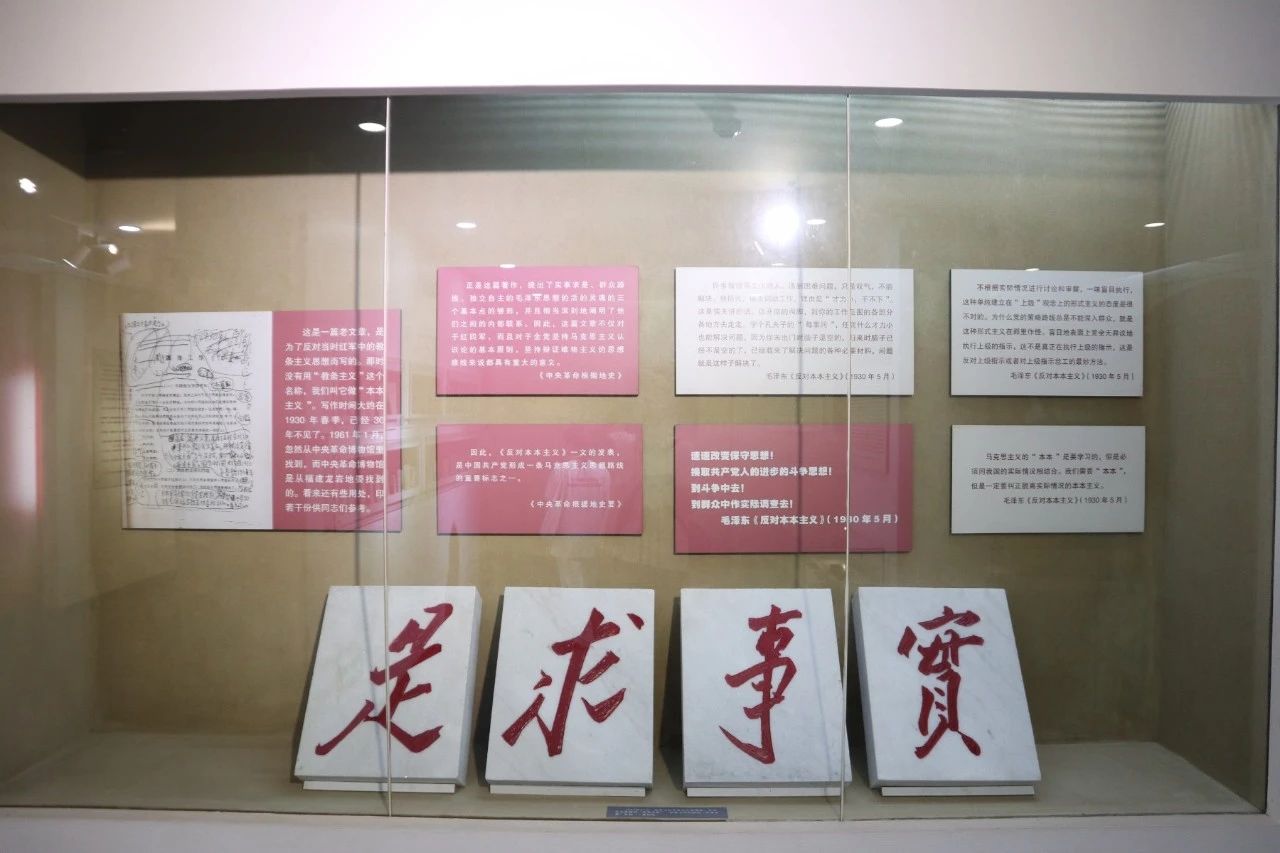 这是一篇老文章，是
为了反对当时红军中的教
条主义思想而写的。那时
没有用“教条主义”这个
名称，我们叫它做“本本
主义”。写作时间大约在
1930年春季，已经30
年不见了。1961年1月，
忽然从中央革命博物馆里
找到，而中央革命博物馆
是从福建龙岩地委找到
的。看来还有些用处，印
若干份供同志们参考。
正是这篇著作，提出了实事求是、群众路
线、独立自主的毛泽东思想的活的灵魂的三
个基本点的雏形，并且相当深刻地阐明了他
们之间的内部联系。因此，这篇文章不仅对
于红四军，而且对于全党坚持马克思主义认
识论的基本原则，坚持辩证唯物主义的思想
路线来说都具有重大的意义。
《中央革命根据地史》
许多做领导工作的人，遇到困难问题，只是叹气，不能
解决。他恼火，请求调动工作，理由是“才力小，干不下”。
这是懦夫讲的话。迈开你的两脚，到你的工作范围的各部分
各地方去走走，学个孔夫子的“每事问”，任凭什么才力小
也能解决问题，因为你未出门时脑子是空的，归来时脑子已
经不是空的了，已经载来了解决问题的各种必要材料，问题
就是这样子解决了。
毛泽东《反对本本主义》（1930年5月）
不根据实际情况进行讨论和审察，一味盲目执行，
这种单纯建立在“上级”观念上的形式主义的态度是很
不对的。为什么党的策略路线总是不能深入群众，就是
这种形式主义在那里作怪。盲目地表面上完全无异议地
执行上级的指示，这不是真正在执行上级的指示，这是
反对上级指示或者对上级指示怠工的最妙方法。
毛泽东《反对本本主义》（1930年5月）
因此，《反对本本主义》一文的发表，
是中国共产党形成一条马克思主义思想路线
的重要标志之一。
《中央革命根据地史要》
速速改变保守思想！
换取共产党人的进步的斗争思想！
到斗争中去！
到群众中作实际调查去！
毛泽东《反对本本主义》（1930年5月）
马克思主义的“本本”是要学习的，但是必
须同我国的实际情况相结合。我们需要“本本”，
但是一定要纠正脱离实际情况的本本主义。
毛泽东《反对本本主义》（1930年5月）
實事求是